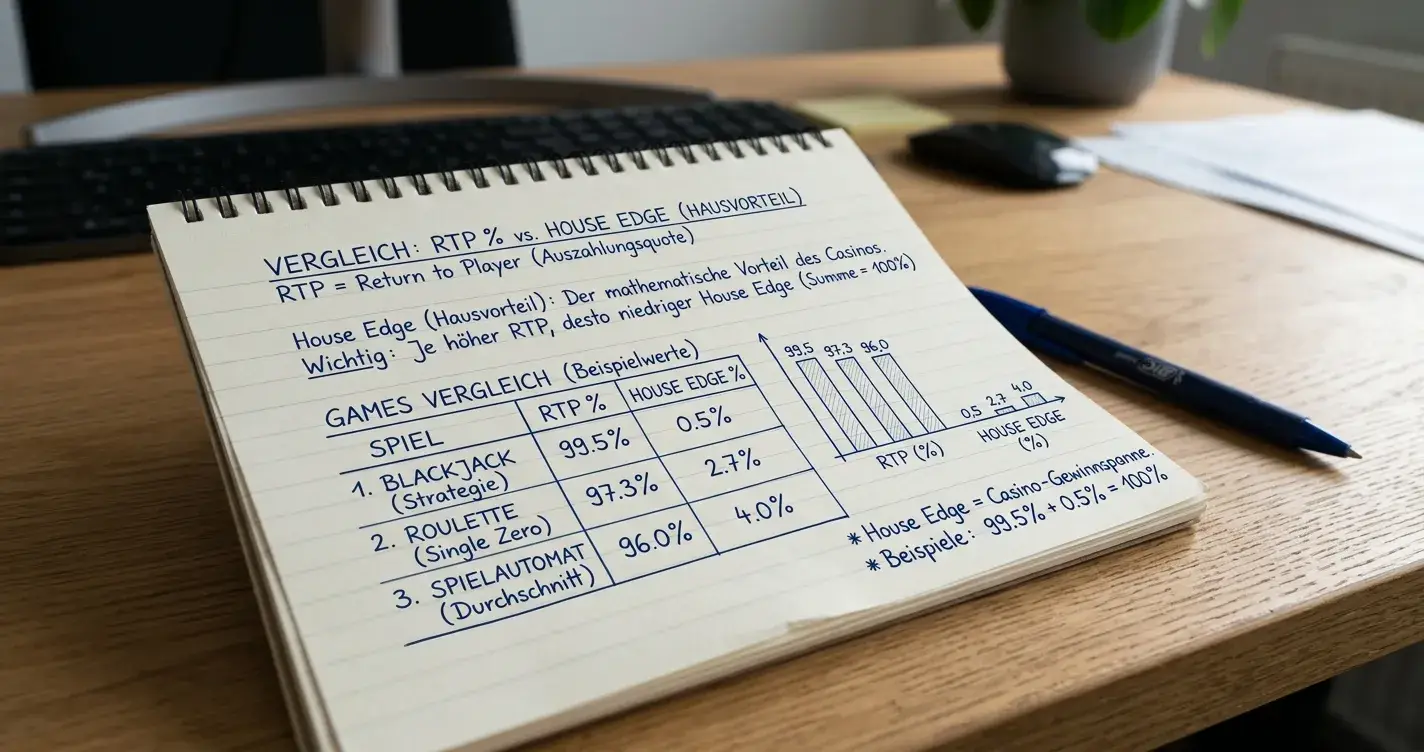 VERGLEICH: RTP % vs. HOUSE EDGE (HAUSVORTEIL)
RTP = Return to Player (Auszahlungsquote)
House Edge (Hausvorteil): Der mathematische Vorteil des Casinos.
Wichtig: Je höher RTP, desto niedriger House Edge (Summe = 100%)
GAMES VERGLEICH (Beispielwerte)
SPIEL RTP % HOUSE EDGE %
1. BLACKJACK 99.5% 0.5%
(Strategie)
2. ROULETTE 97.3% 2.7%
(Single Zero)
3. SPIELAUTOMAT 96.0% 4.0%
(Durchschnitt)
99.5 97.3 96.0
0.5 2.7 4.0
RTP (%) HOUSE EDGE
(%)
* House Edge = Casino-Gewinnspanne.
* Beispiele: 99.5% + 0.5% = 100%
BIC